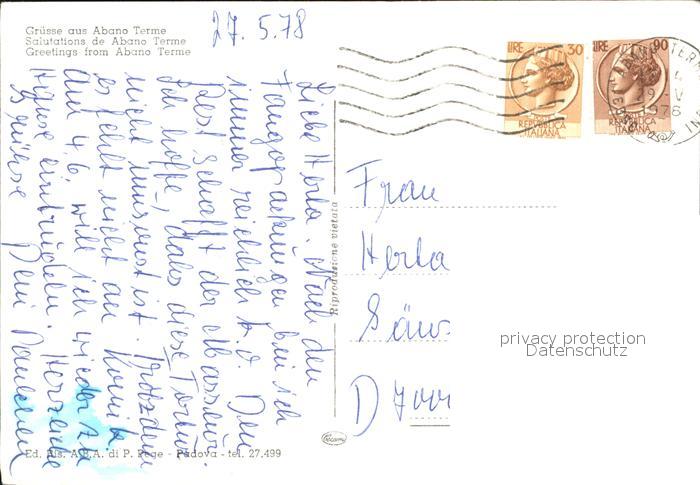 Grüsse aus Abano Terme
Salutations de Abano Terme
Greetings from Abano Terme
27. 5. 78
LIRE 30
LIRE 90
REPVBBLICA
ITALIANA
REPVBBLICA
ITALIANA
1976
Liebe Herta. Nach den
Fangopackungen bin ich
immer reichlich k.o. Den
Rest schafft der Masseur.
Ich hoffe, daß diese Tortur
nicht umsonst ist. Trotzdem
es fehlt nicht an Komik.
Am 4.6. will ich wieder zu
Hause eintrudeln. Herzliche
Grüsse Dein
Riproduzione vietata
Frau
Herta
D 7
privacy protection
Datenschutz
Ed. Ris. A.B.A. di P. Rege - Padova - tel. 27.499